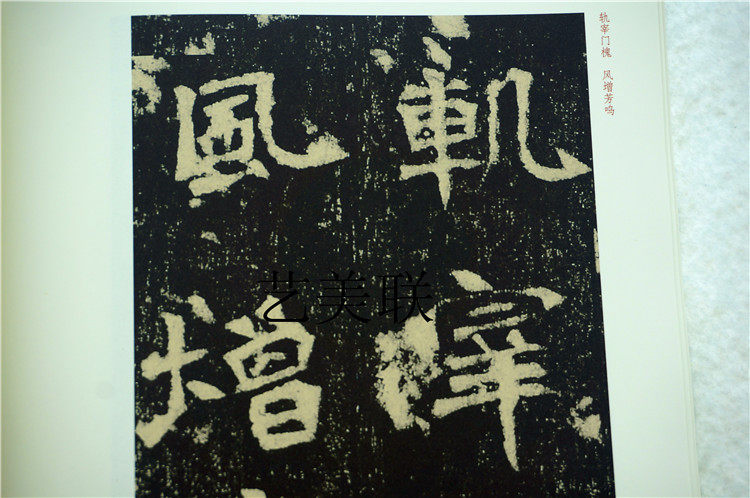 轨宰门槐 风增芳呜
軌宰
風增
艺美联